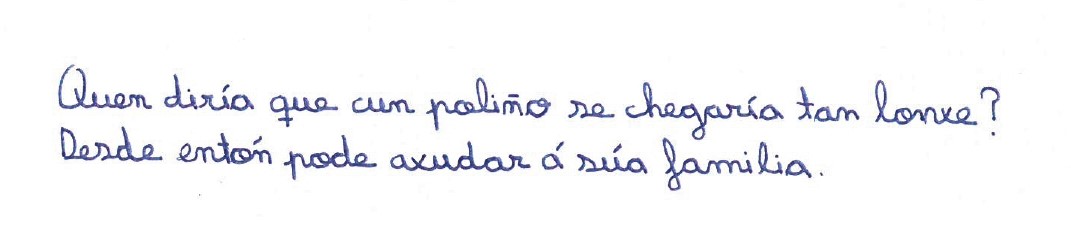 Quen diría que cun paliño se chegaría tan lonxe?
Desde entón pode axudar á súa familia.